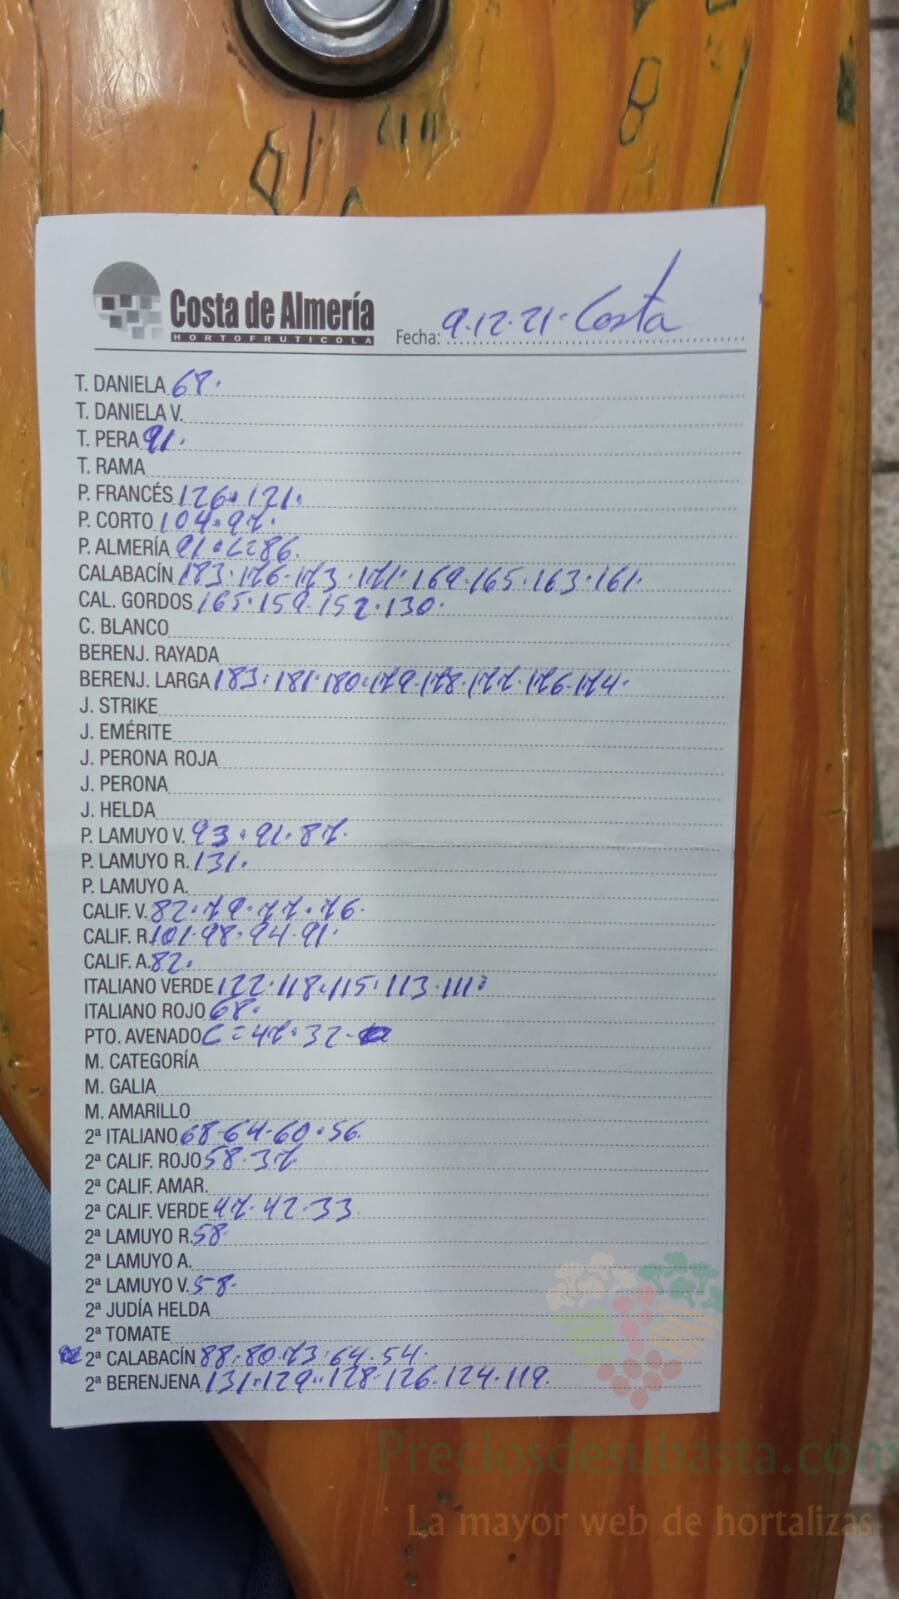 Costa de Almería
HORTOFRUTICOLA
Fecha: 9.12.21. Costa
T. DANIELA 68.
T. DANIELA V.
T. PERA 91.
T. RAMA
P. FRANCÉS 126. 121.
P. CORTO 104. 97.
P. ALMERÍA 91. C=86.
CALABACÍN 183. 176. 173. 171. 169. 165. 163. 161.
CAL. GORDOS 165. 159. 152. 130.
C. BLANCO
BERENJ. RAYADA
BERENJ. LARGA 183. 181. 180. 179. 178. 177. 176. 174.
J. STRIKE
J. EMÉRITE
J. PERONA ROJA
J. PERONA
J. HELDA
P. LAMUYO V. 93. 91. 87.
P. LAMUYO R. 131.
P. LAMUYO A.
CALIF. V. 82. 79. 77. 76.
CALIF. R. 101. 98. 94. 91.
CALIF. A. 82.
ITALIANO VERDE 122. 118. 115. 113. 111.
ITALIANO ROJO 68.
PTO. AVENADO C=47. 32.
M. CATEGORÍA
M. GALIA
M. AMARILLO
2ª ITALIANO 68. 64. 60. 56.
2ª CALIF. ROJO 58. 37.
2ª CALIF. AMAR.
2ª CALIF. VERDE 47. 42. 33.
2ª LAMUYO R. 58.
2ª LAMUYO A.
2ª LAMUYO V. 58.
2ª JUDÍA HELDA
2ª TOMATE
2ª CALABACÍN 88. 80. 73. 64. 54.
2ª BERENJENA 131. 129. 128. 126. 124. 119.
Preciosdesubasta.com
La mayor web de hortalizas